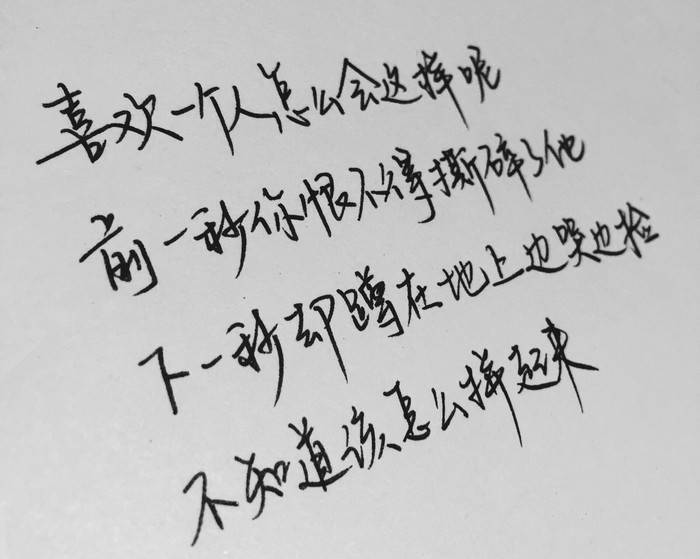 喜欢一个人怎么会这样呢
前一秒你恨不得撕碎了他
下一秒却蹲在地上边哭边捡
不知道该怎么拼起来